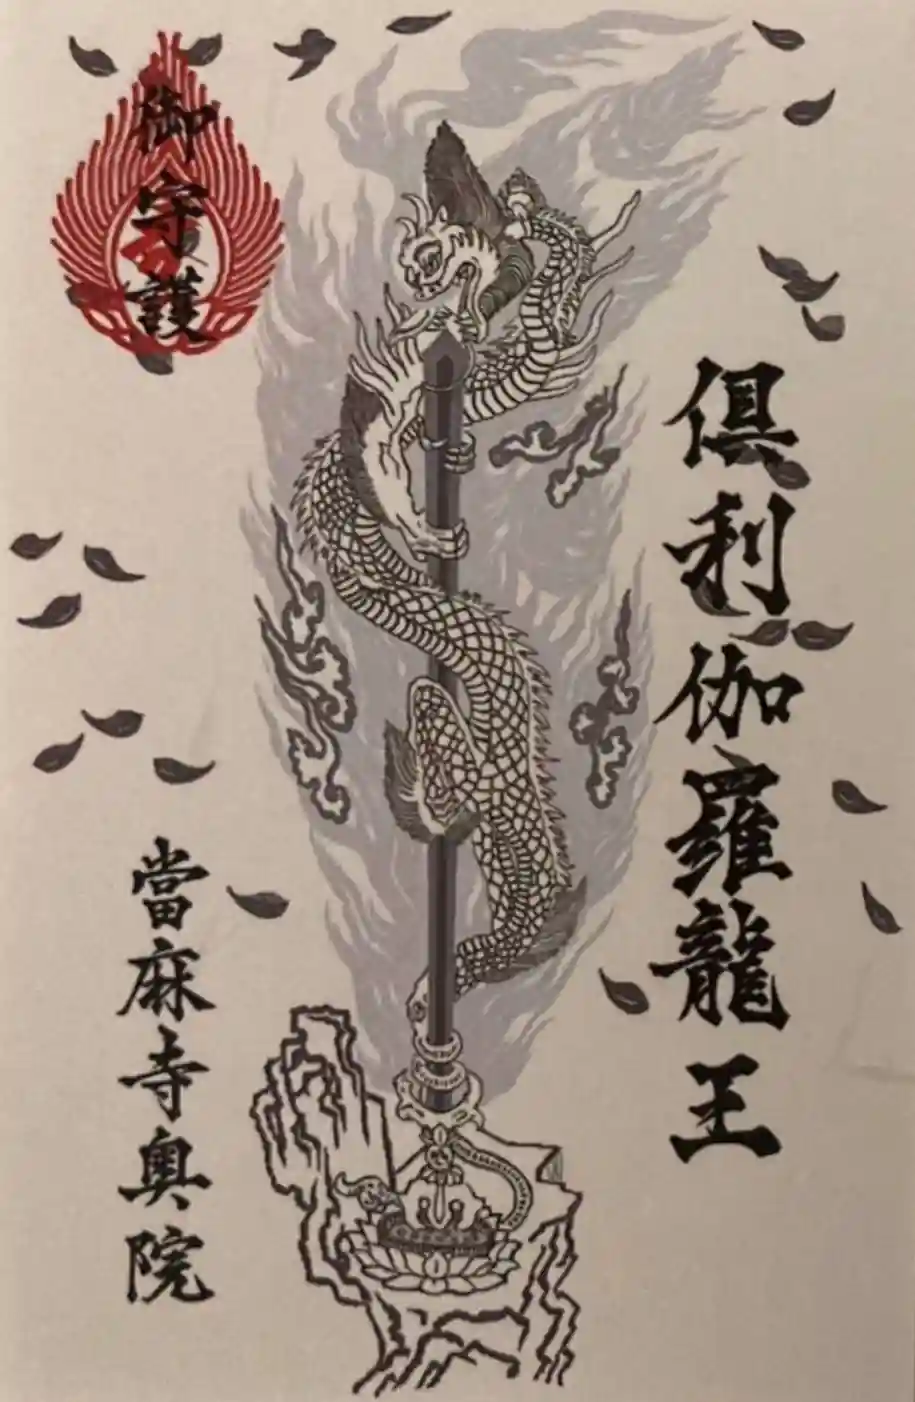 倶利伽羅龍王
御守護
當麻寺奥院